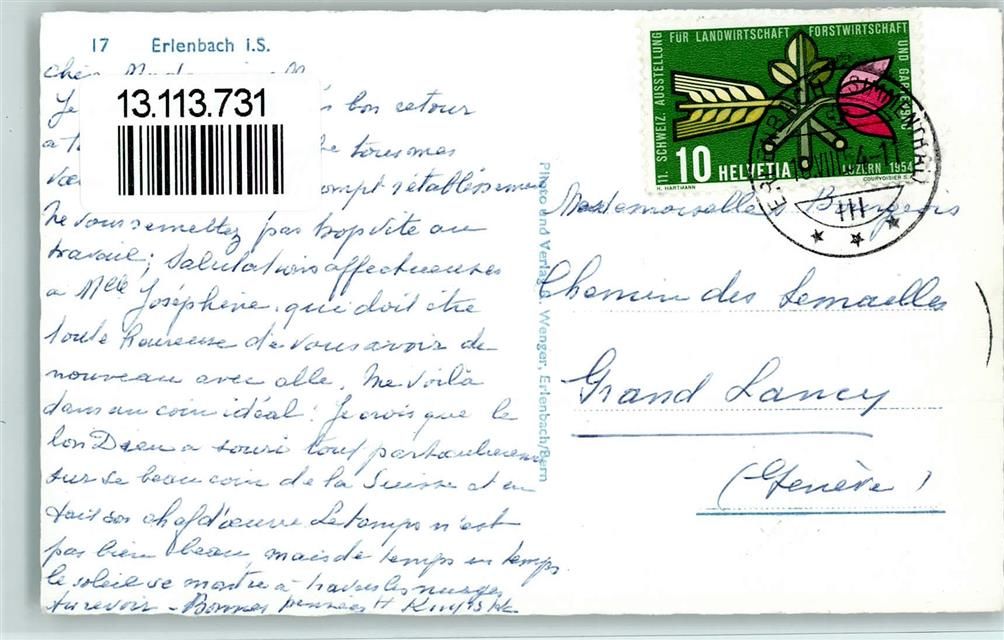 17 Erlenbach i.S.
13.113.731
Je bon retour
a toursmes
ompt rétablissement
Ne vous remettez pas trop vite au
travail; Salutations affectueuses
a Mlle Joséphine qui doit être
toute heureuse de vous avoir de
nouveau avec elle. Me voilà
dans un coin idéal! Je crois que le
bon Dieu a souri tout particulièrement
sur se beau coin de la Suisse et en
fait son chef d'œuvre. Le temps n'est
pas bien beau, mais de temps en temps
le soleil se montre à travers les nuages
Au revoir - Bonnes pensées H
Photo und Verlag Wenger, Erlenbach/Bern
11. SCHWEIZ. AUSSTELLUNG FÜR LANDWIRTSCHAFT FORSTWIRTSCHAFT UND GARTENBAU
10 HELVETIA LUZERN 1954
H. HARTMANN COURVOISIER S.A.
ERLENBACH (SIMMENTHAL)
VIII
III
Mademoiselle Bourgeois
Chemin des Semailles
Grand Lancy
(Genève)